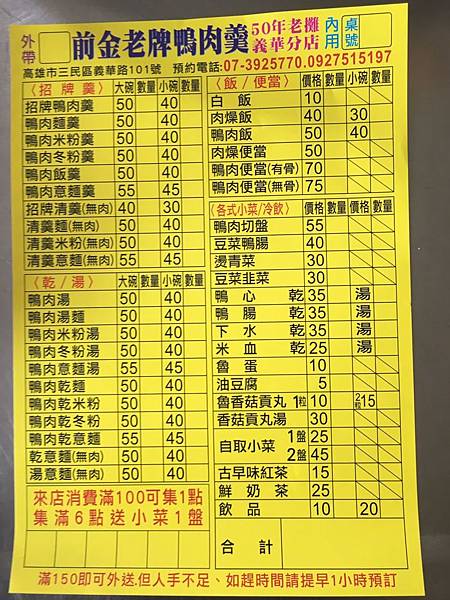 外帶
前金老牌鴨肉羹 50年老攤 義華分店
內用 桌號
高雄市三民區義華路101號 預約電話:07-3925770.0927515197
〈招 牌 羹〉 大碗 數量 小碗 數量
招牌鴨肉羹 50 40
鴨肉麵羹 50 40
鴨肉米粉羹 50 40
鴨肉冬粉羹 50 40
鴨肉飯羹 50 40
鴨肉意麵羹 55 45
招牌清羹(無肉) 40 30
清羹麵(無肉) 50 40
清羹米粉(無肉) 50 40
清羹意麵(無肉) 55 45
〈乾/湯〉 大碗 數量 小碗 數量
鴨肉湯 50 40
鴨肉湯麵 50 40
鴨肉米粉湯 50 40
鴨肉冬粉湯 50 40
鴨肉意麵湯 55 45
鴨肉乾麵 50 40
鴨肉乾米粉 50 40
鴨肉乾冬粉 50 40
鴨肉乾意麵 55 45
乾意麵(無肉) 50 40
湯意麵(無肉) 50 40
來店消費滿100可集1點
集滿6點送小菜1盤
〈飯/便當〉 價格 數量 小碗 數量
白飯 10
肉燥飯 40 30
鴨肉飯 50 40
肉燥便當 50
鴨肉便當(有骨) 70
鴨肉便當(無骨) 75
〈各式小菜/冷飲〉 價格 數量 價格 數量
鴨肉切盤 55
豆菜鴨腸 40
燙青菜 30
豆菜韭菜 30
鴨心 乾 35 湯
鴨腸 乾 35 湯
下水 乾 35 湯
米血 乾 25 湯
魯蛋 10
油豆腐 5
魯香菇貢丸 1粒 10 2粒 15
香菇貢丸湯 30
自取小菜 1盤 25
2盤 45
古早味紅茶 15
鮮奶茶 25
飲品 10 20
合計
滿150即可外送.但人手不足、如趕時間請提早1小時預訂